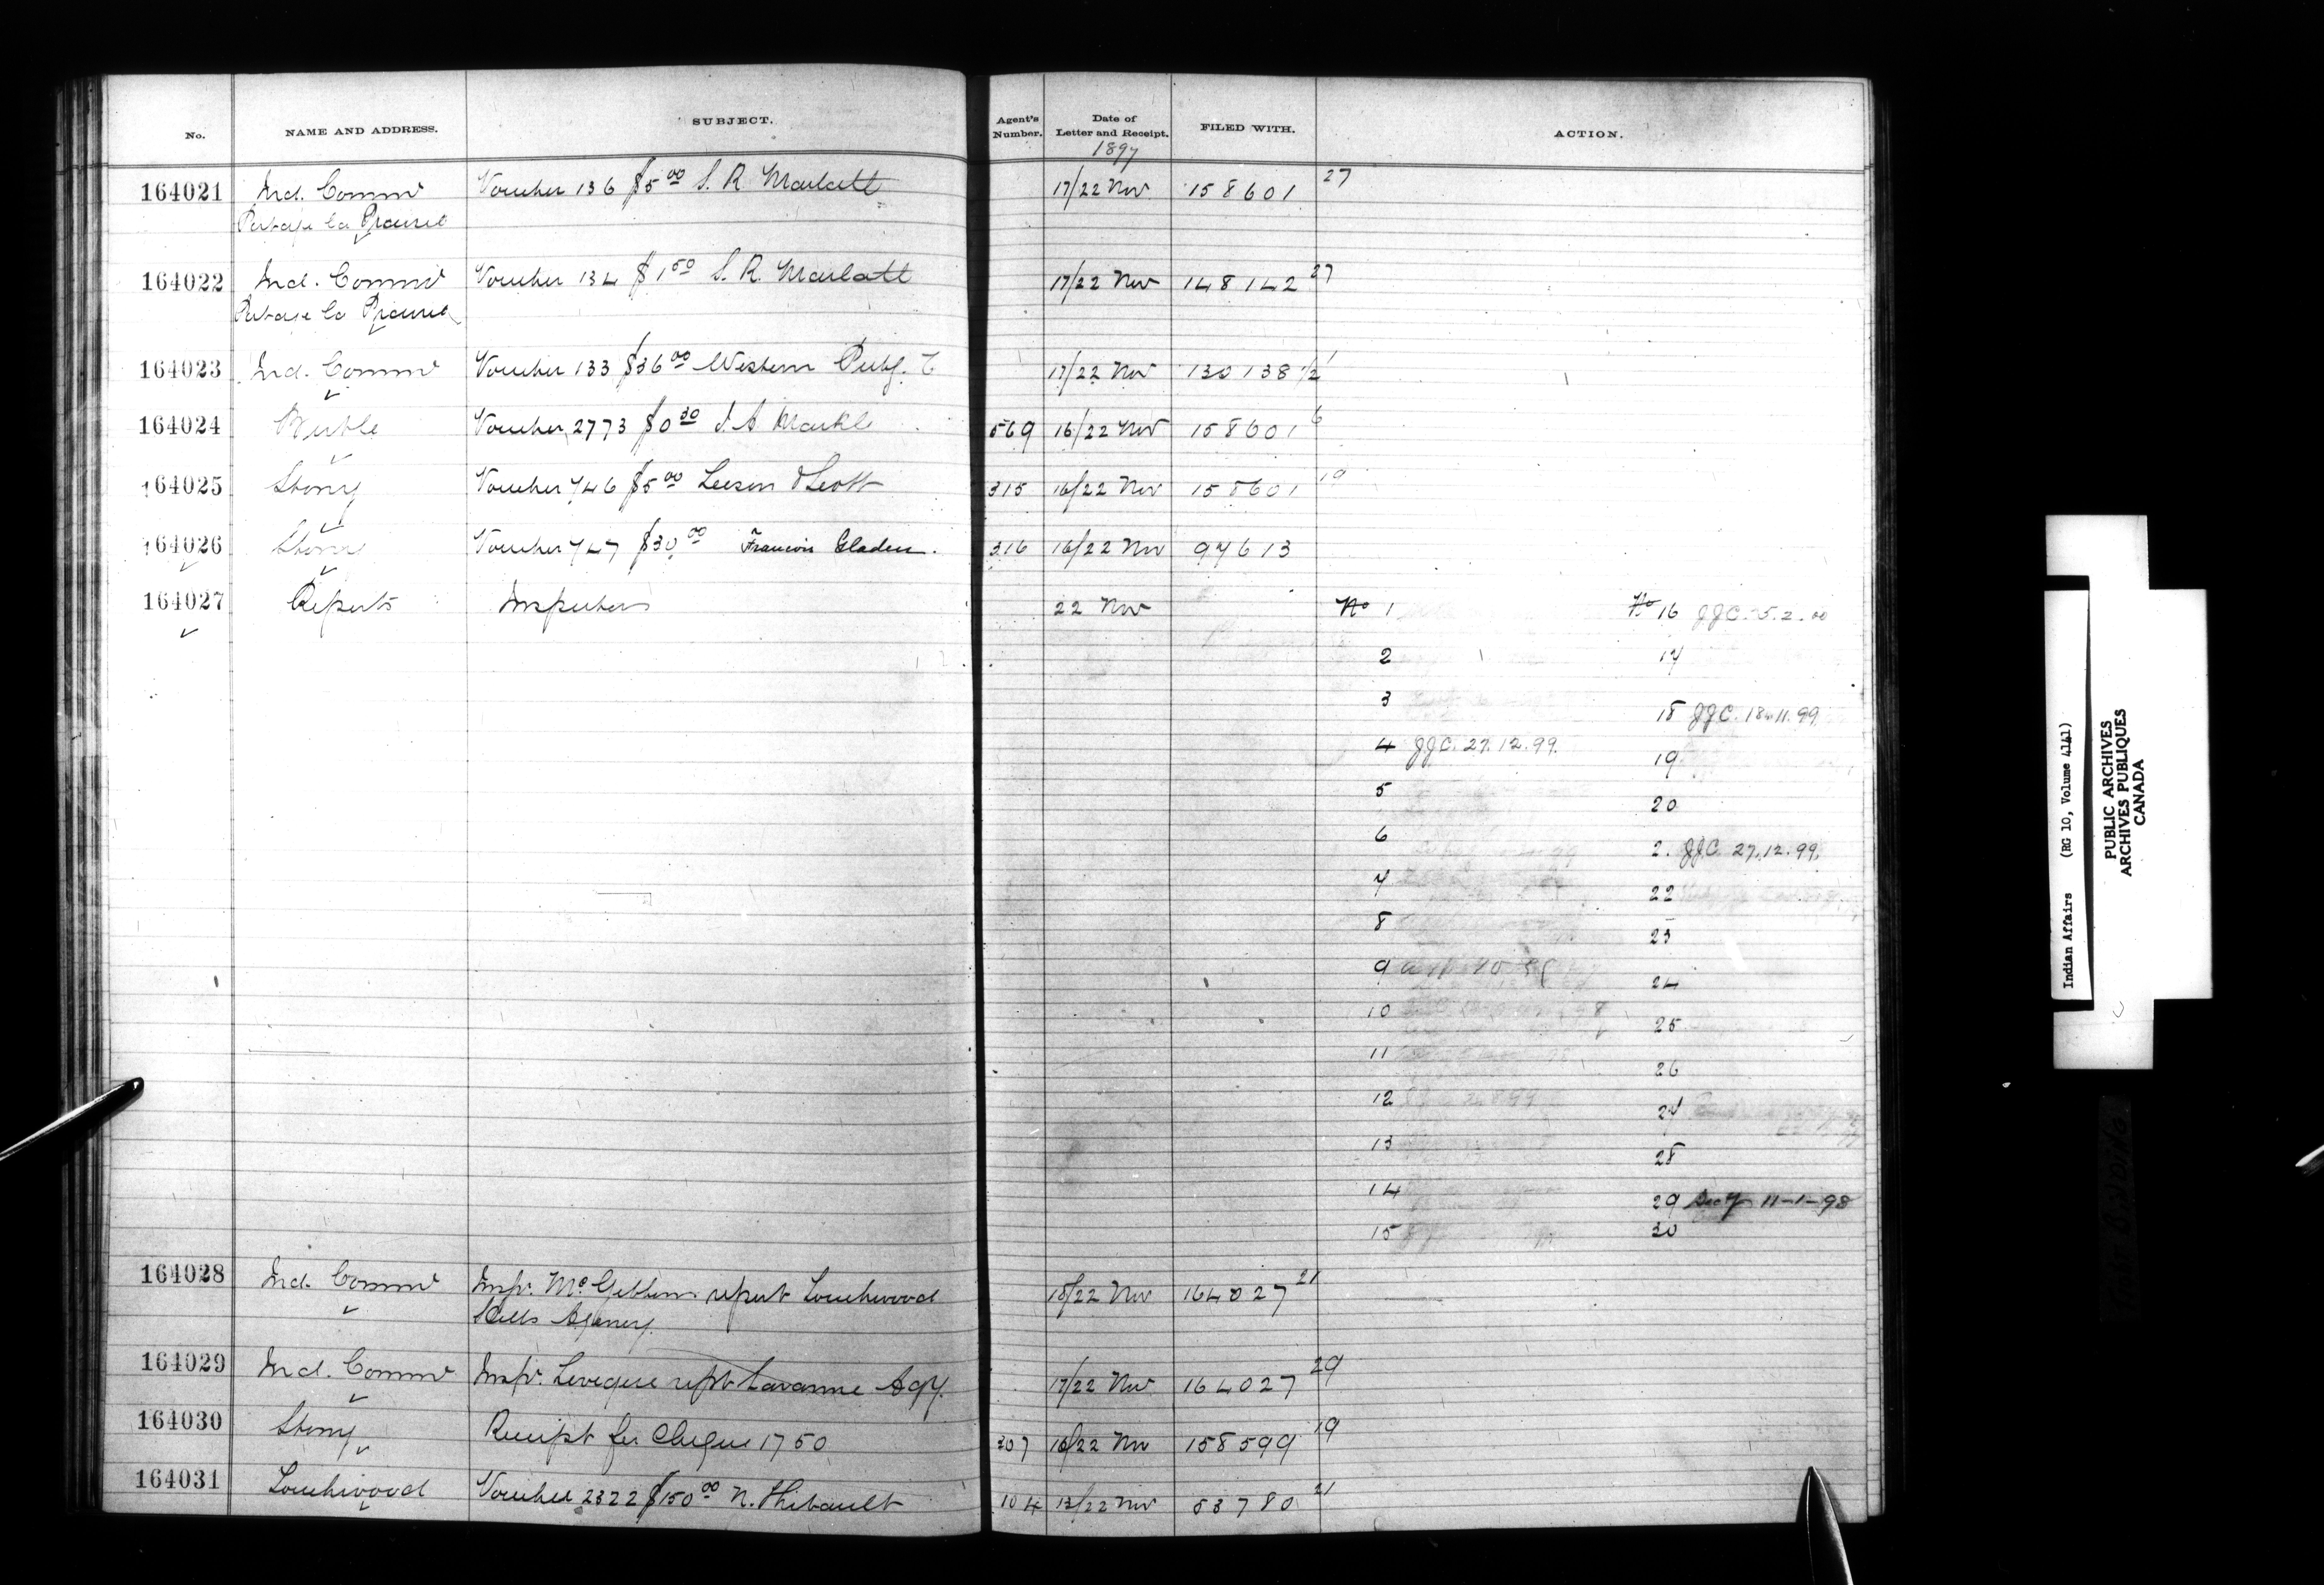 No. NAME AND ADDRESS. SUBJECT. Agent's Number. Date of Letter and Receipt. FILED WITH. ACTION.
1897
164021 Ind. Commr Voucher 136 $5 00 S. R. Marlatt 17/22 Nov 158601 27
Portage la Prairie
164022 Ind. Commr Voucher 134 $1 50 S. R. Marlatt 17/22 Nov 148142 27
Portage la Prairie
164023 Ind. Commr Voucher 133 $36 00 Western Pubg. C 17/22 Nov 130138 1/2 1
164024 Birtle Voucher 2773 $0 30 J. A. Markle 569 16/22 Nov 158601 6
164025 Stony Voucher 746 $5 00 Leeson & Scott 315 16/22 Nov 158601 19
164026 Stony Voucher 747 $30 00 Francois 316 16/22 Nov 97613
164027 Reports Inspectors 22 Nov No 1 No 16 JJC. 5.2.00
2 17
3 18 JJC. 18.11.99
4 JJC. 27.12.99. 19
5 20
6 2. JJC. 27.12.99.
7 22
8 23
9 24
10 25
11 26
12 27
13 28
14 29 Secy 11-1-98
15 30
164028 Ind. Commr Inspr. McGibbons report Touchwood 18/22 Nov 164027 21
Hills Agency
164029 Ind. Commr Inspr. Leveque rept Savanne Agy. 17/22 Nov 164027 29
164030 Stony Receipt for Cheque 1750 307 16/22 Nov 158599 19
164031 Touchwood Voucher 2322 $150 00 N. Thibault 104 13/22 Nov 53780 21
Indian Affairs (RG 10, Volume 4141)
PUBLIC ARCHIVES
ARCHIVES PUBLIQUES
CANADA